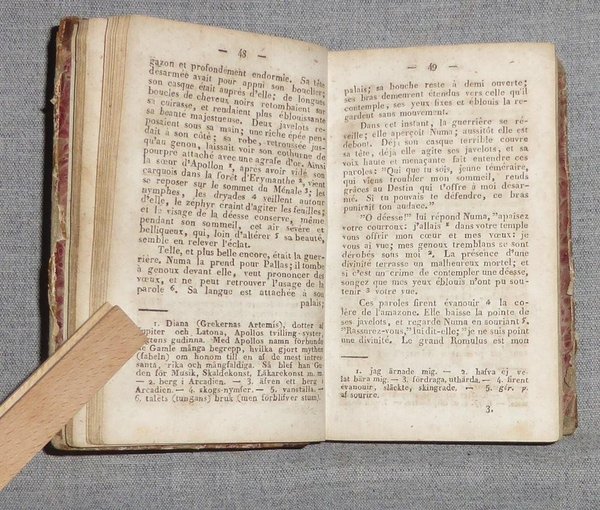 — 48 —
gazon et profondément endormie. Sa tête
désarmée avait pour appui son bouclier;
son casque était auprès d'elle; de longues
boucles de cheveux noirs retombaient sur
sa cuirasse, et rendaient plus éblouissante
sa beauté majestueuse. Deux javelots re-
posaient sous sa main; une riche épée pen-
dait à son côté; sa robe, retroussée jus-
qu'au genon, laissait voir son cothurne de
pourpre attaché avec une agrafe d'or. Ainsi
la sœur d'Apollon ¹, après avoir vidé son
carquois dans la forêt d'Erymanthe ², vient
se reposer sur le sommet du Ménale ³; les
nymphes, les dryades ⁴ veillent autour
d'elle, le zéphyr craint d'agiter les feuilles;
et le visage de la déesse conserve, même
pendant son sommeil, cet air sévère et
belliqueux, qui, loin d'altérer ⁵ sa beauté,
semble en relever l'éclat.
Telle, et plus belle encore, était la guer-
rière, Numa la prend pour Pallas; il tombe
à genoux devant elle, veut prononcer des
vœux, et ne peut retrouver l'usage de la
parole ⁶. Sa langue est attachée à son
palais;
1. Diana (Grekernas Artemis), dotter af
Jupiter och Latona, Apollos tvilling-syster,
Jagtens gudinna. Med Apollos namn förbundo
de Gamle många begrepp, hvilka gjort mythen
(fabeln) om honom till en af de mest intres-
santa, rika och mångfaldiga. Så blef han Gu-
den för Musik, Skaldekonst, Läkarekonst m. m.
— 2. berg i Arcadien. — 3. äfven ett berg i
Arcadien. — 4. skogs-nymfer. — 5. vanställa. —
6. talets (tungans) bruk (men förblifver stum).
— 49 —
palais; sa bouche reste à demi ouverte;
ses bras demeurent étendus vers celle qu'il
contemple, ses yeux fixes et éblouis la re-
gardent sans mouvement.
Dans cet instant, la guerrière se ré-
veille; elle aperçoit Numa; aussitôt elle est
debout. Déjà son casque terrible couvre
sa tête, déjà elle agite ses javelots, et sa
voix haute et menaçante fait entendre ces
paroles: "Qui que tu sois, jeune téméraire,
qui viens troubler mon sommeil, rends
grâces au Destin qui t'offre à moi désar-
mé. Si tu pouvais te défendre, ce bras
punirait ton audace."
"O déesse!" lui répond Numa, "apaisez
votre courroux: j'allais ¹ dans votre temple
vous offrir mon cœur et mes vœux: je
vous ai vue; mes genoux tremblans se sont
dérobés sous moi ². La présence d'une
divinité terrasse un malheureux mortel; et
si c'est un crime de contempler une déesse,
songez que mes yeux éblouis n'ont pu sou-
tenir ³ votre vue.
Ces paroles firent évanouir ⁴ la co-
lère de l'amazone. Elle baisse la pointe de
ses javelots, et regarde Numa en souriant ⁵.
"Rassurez-vous," lui dit-elle; "je ne suis point
une divinité. Le grand Romulus est mon
1. jag ärnade mig. — 2. hafva ej ve-
lat bära mig. — 3. fördraga, uthärda. — 4. firent
évanouir, släckte, skingrade. — 5. gér. p.
af sourire.
3.